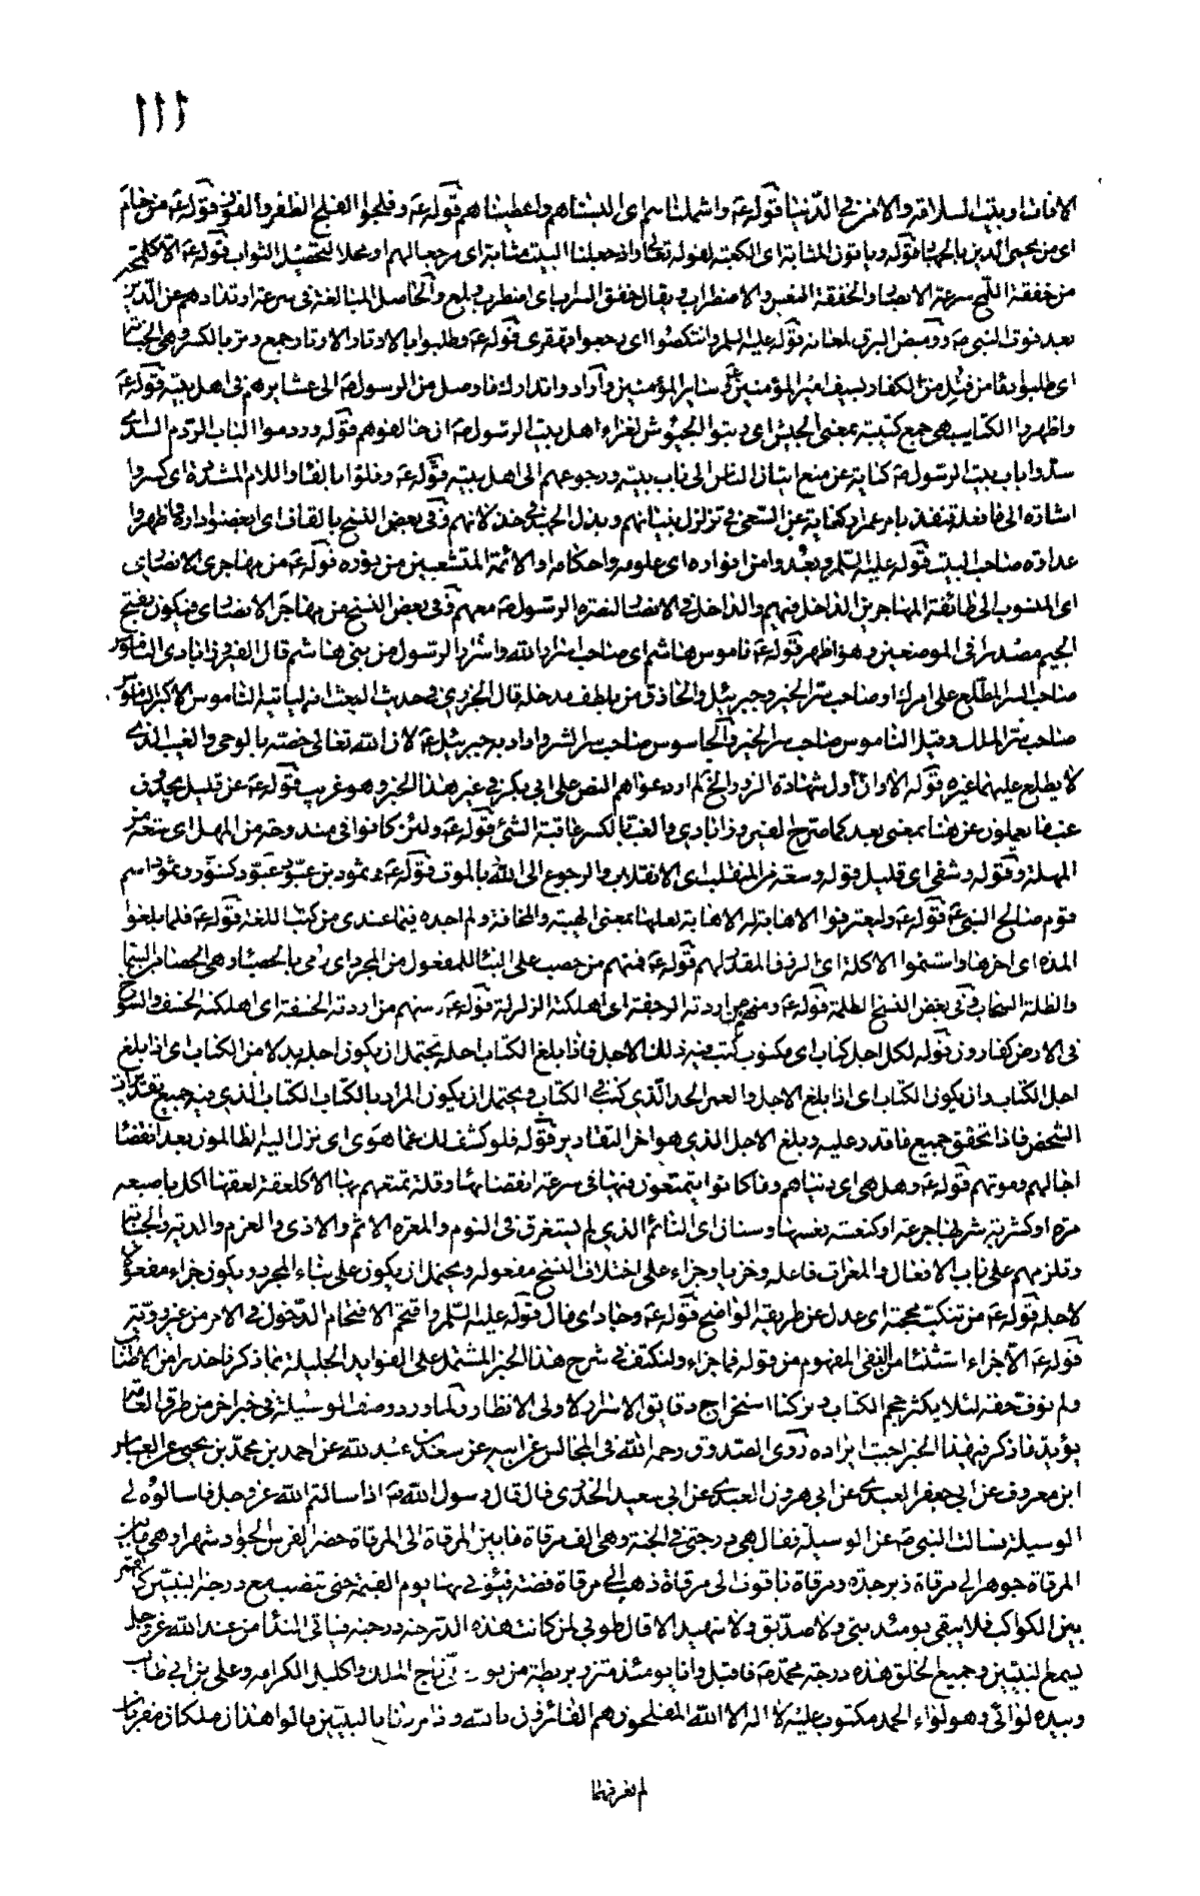 ١١١
الافات او بيت السلامة والامن في الدنيا قوله ع واشملناهم اى البسناهم واعطيناهم قوله ع وفلجوا الفلج الظفر والفوز قوله ع من حام
اى من يحيى الدين بالجهاد قوله وياتون المثابة اى الكعبة لقوله تعالى واذ جعلنا البيت مثابة اى مرجعا لهم او محلا لتحصيل الثواب قوله ع الا كلمح
من خفقة اللمح سرعة الابصار والخفقة النعس والاضطراب يقال خفق السراب اى اضطرب ولمع والحاصل المبالغة في سرعة ارتدادهم عن الدين
بعد فوت النبي ص ووميض البرق لمعانه قوله عليه السلم وانتكصوا اى رجعوا قهقرى قوله ع وطلبوا بالاوتار الاوتار جمع وتر بالكسر وهى الجناية
اى طلبوا دماء من قتل من الكفار بسيف امير المؤمنين ع وساير المؤمنين وارادوا تدارك ما وصل من الرسول ص الى عشايرهم في اهل بيته قوله ع
واظهروا الكتايب هى جمع كتيبة بمعنى الجيش اى رتبوا الجيوش لغزاء اهل بيت الرسول ص ان خالفوهم قوله وردموا الباب الردم السد اى
سدوا باب بيت الرسول ص كناية عن منع اتيان الناس الى باب بيته ورجوعهم الى اهل بيته قوله ع وفلوا بالفاء واللام المشددة اى كسروا
اشارة الى ما فعله قنفذ بامر عمر او كناية عن السعى في تزلزل بنيانهم وبذل الجهد في خذلانهم وفي بعض النسخ بالقاف اى ابغضوا داره واظهروا
عداوة صاحب البيت قوله عليه السلم وبعدوا من انواره اى علومه واحكامه والائمة المتشعبين من نوره قوله ع من مهاجرى الانصارى
اى المنسوب الى طائفة المهاجرين الداخل فيهم والداخل في الانصار لنصرة الرسول ص معهم وفي بعض النسخ من مهاجر الانصار اى فيكون بفتح
الجيم مصدرا في الموضعين وهو اظهر قوله ع ناموس هاشم اى صاحب اسرار الله واسرار الرسول من بني هاشم قال الفيروزابادى الناموس
صاحب السر المطلع على امرك او صاحب سر الخير وجبرئيل والحاذق من يلطف مدخله قال الجزري في حديث البعث انه لياتيه الناموس الاكبر الناموس
صاحب سر الملك وقيل الناموس صاحب سر الخير والجاسوس صاحب سر الشر واراد به جبرئيل ع لان الله تعالى خصه بالوحى والغيب الذى
لا يطلع عليهما غيره قوله الا وان اول شهادة الزور الخ لم ار دعواهم النص على ابي بكر في غير هذا الخبر وهو غريب قوله ع عن قليل يجدون
غب ما يعملون عن هنا بمعنى بعد كما صرح الفيروزابادي والغب بالكسر عاقبة الشئ قوله ع ولئن كانوا في مندوحة من المهل اى سعة من
المهلة وقوله وشفى اى قليل قوله وسعة من المنقلب اى الانقلاب والرجوع الى الله بالموت قوله ع وثمود بن عبود عبود كتنور وثمود اسم
قوم صالح النبي ع قوله ع وليعترفوا الاهابة له الاهابة لعلها بمعنى الهيبة والمخافة ولم اجده فيما عندى من كتب اللغة قوله ع فلما بلغوا
المدة اى اخرها واستتموا الاكلة اى الرزق المقدر لهم قوله ع فمنهم من حصب على البناء للمفعول من المجرد اى رمى بالحصباء وهى الحصاة من السماء
والظلة السحاب وفي بعض النسخ الظلمة قوله ع ومنهم من اردته الرجفة اى اهلكته الزلزلة قوله ع ومنهم من اردته الخسفة اى اهلكته الخسف والسوخ
في الارض كقارون قوله لكل اجل كتاب اى مكتوب كتب فيه ذلك الاجل فاذا بلغ الكتاب اجله يحتمل ان يكون اجله بدلا من الكتاب اى اذا بلغ
اجل الكتاب وان يكون الكتاب اى اذا بلغ الاجل والعمر الحد الذى كتب في الكتاب ويحتمل ان يكون المراد بالكتاب الكتاب الذى فيه جميع تقديرات
الشخص فاذا تحقق جميع ما قدر عليه وبلغ الاجل الذى هو اخر التقادير قوله فلو كشف لك عما هوى اى نزل اليه الظالمون بعد انقضاء
اجالهم وموتهم قوله ع وهل هى اى دنياهم وما كانوا يتمتعون فيها في سرعة انقضائها وقلة تمتعهم بها الا كلعقة لعقها اكل باصبعه
مرة او كشربة شربها جرعة او كنعسة نعسها وسنان اى النائم الذى لم يستغرق في النوم والمعرة الاثم والاذى والغرم والدية والجناية
وتلزمهم على باب الافعال والمعرات فاعله وخزيا وجزاء على اختلاف النسخ مفعوله ويحتمل ان يكون على بناء المجرد ويكون جزاء مفعولا
لاجله قوله ع من تنكب محجة اى عدل عن طريقه الواضح قوله ع وحاد اى مال قوله عليه السلم واقتحم الاقتحام الدخول في الامر من غير روية
قوله ع الا جزاء استثناء من النفى المفهوم من قوله فما جزاء ولنكتف في شرح هذا الخبر المشتمل على الفوايد الجليلة بما ذكرنا حذرا من الاطناب
ولم نوف حقه لئلا يكثر حجم الكتاب وتركنا استخراج دقايق الاسرار لاولى الانظار ولما ورد وصف الوسيلة في خبر اخر من طرق العامة
يؤيد ما ذكر في هذا الخبر احببت ايراده روى الصدوق رحمه الله في المجالس عن ابيه عن سعد بن عبد الله عن احمد بن محمد بن يحيى عن العباس
ابن معروف عن ابي جعفر العبدى عن ابي هرون العبدى عن ابي سعيد الخدرى قال قال رسول الله ص اذا سالتم الله عز وجل فاسالوه لى
الوسيلة فسالت النبي ص عن الوسيلة فقال هى درجتى في الجنة وهى الف مرقاة ما بين المرقاة الى المرقاة حضر الفرس الجواد شهرا وهى ما بين
المرقاة جوهر الى مرقاة زبرجدة ومرقاة ياقوت الى مرقاة ذهب الى مرقاة فضة فيؤتى بها يوم القيمة حتى تنصب مع درجة النبيين كالقمر
بين الكواكب فلا يبقى يومئذ نبى ولا صديق ولا شهيد الا قال طوبى لمن كانت هذه الدرجة درجته فياتى النداء من عند الله عز وجل
يسمع النبيين وجميع الخلق هذه درجة محمد ص فاقبل وانا يومئذ متزر بريطة من نور تاج الملك واكليل الكرامة وعلى بن ابي طالب
وبيده لوائى وهو لواء الحمد مكتوب عليه لا اله الا الله المفلحون هم الفائزون بالله واذا مررنا بالنبيين قالوا هذان ملكان مقربان
لم نعرفهما